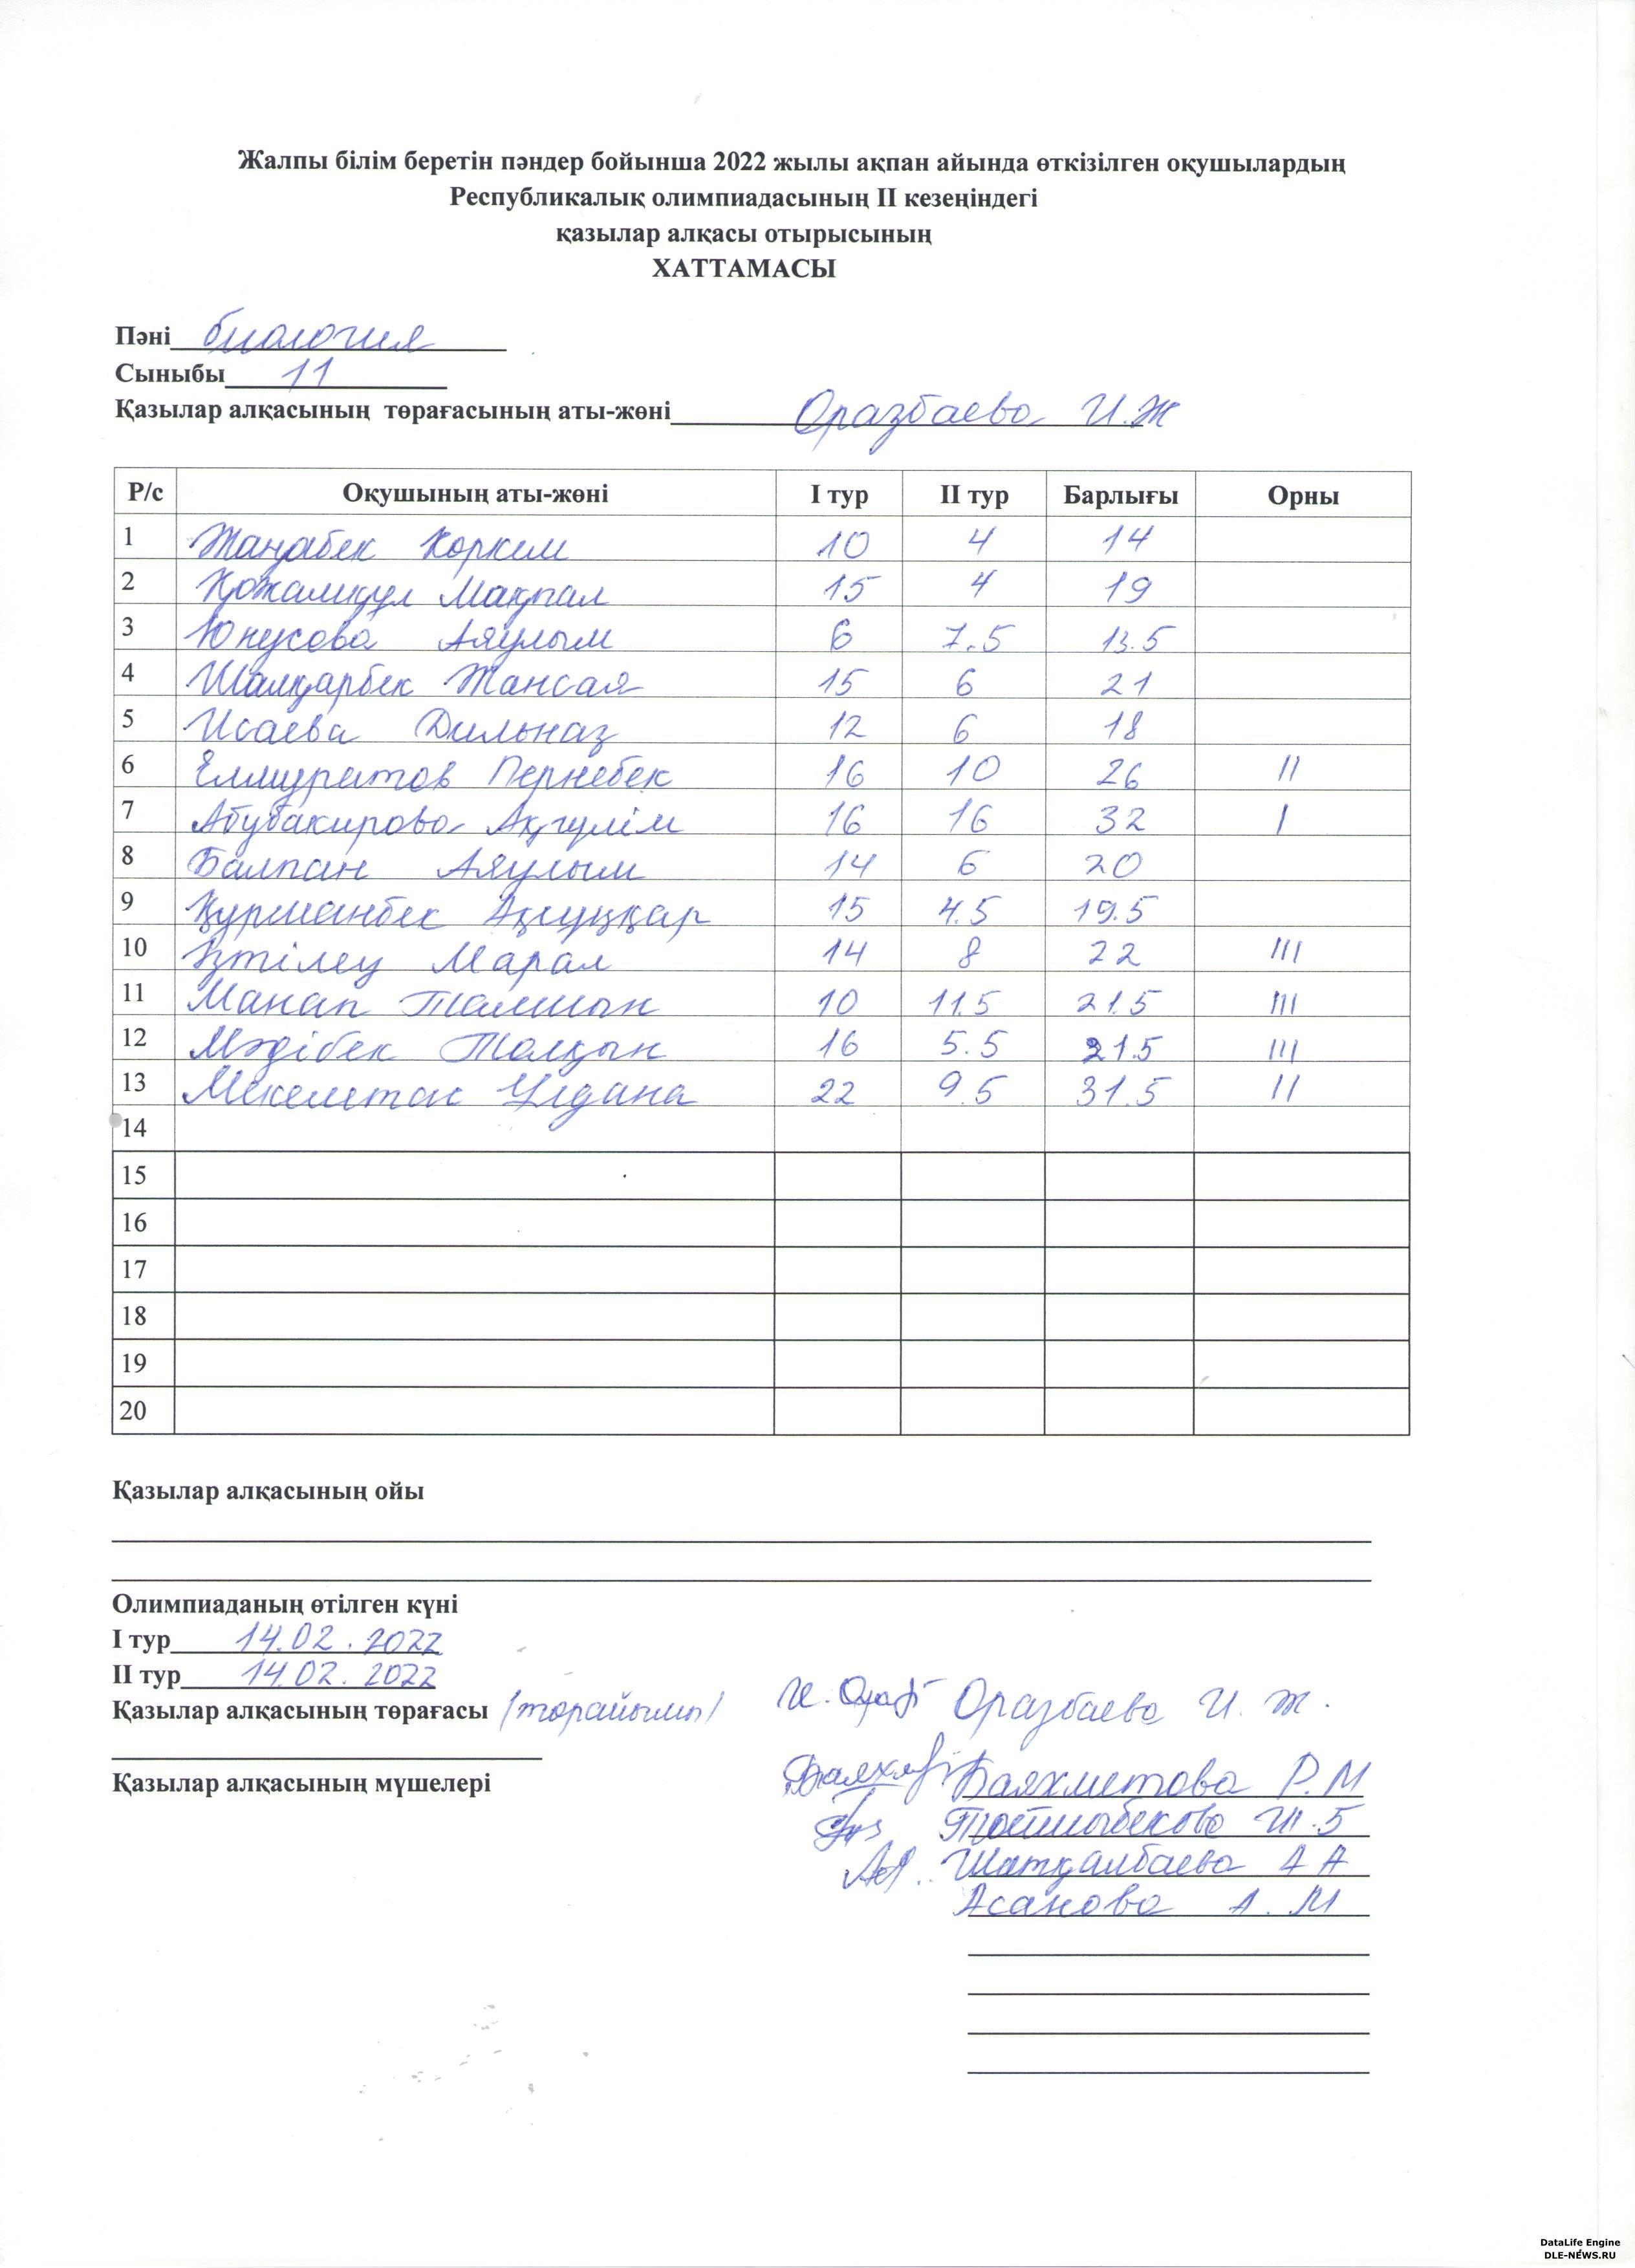 Жалпы білім беретін пәндер бойынша 2022 жылы ақпан айында өткізілген оқушылардың
Республикалық олимпиадасының II кезеңіндегі
қазылар алқасы отырысының
ХАТТАМАСЫ
Пәні биология
Сыныбы 11
Қазылар алқасының төрағасының аты-жөні Оразбаева И.Ж
Р/с Оқушының аты-жөні I тур II тур Барлығы Орны
1 Жаңабек Көркем 10 4 14
2 Қожамқұл Мақпал 15 4 19
3 Юнусова Аяулым 6 7.5 13.5
4 Шалқарбек Жансая 15 6 21
5 Исаева Дильназ 12 6 18
6 Елмуратов Пернебек 16 10 26 II
7 Абубакирова Ақгүлім 16 16 32 I
8 Балпан Аяулым 14 6 20
9 Құрманбек Ақсұңқар 15 4.5 19.5
10 Құтілеу Марал 14 8 22 III
11 Манап Талшын 10 11.5 21.5 III
12 Мәдібек Толқын 16 5.5 21.5 III
13 Мекемтас Ұлдана 22 9.5 31.5 II
14
15
16
17
18
19
20
Қазылар алқасының ойы
Олимпиаданың өтілген күні
I тур 14.02.2022
II тур 14.02.2022
Қазылар алқасының төрағасы (төрайымы) Оразбаева И.Ж.
Қазылар алқасының мүшелері Баяхметова Р.М
Тойшыбекова Ш.Б
Шатқалбаева А А
Асанова А.М
DataLife Engine
DLE-NEWS.RU